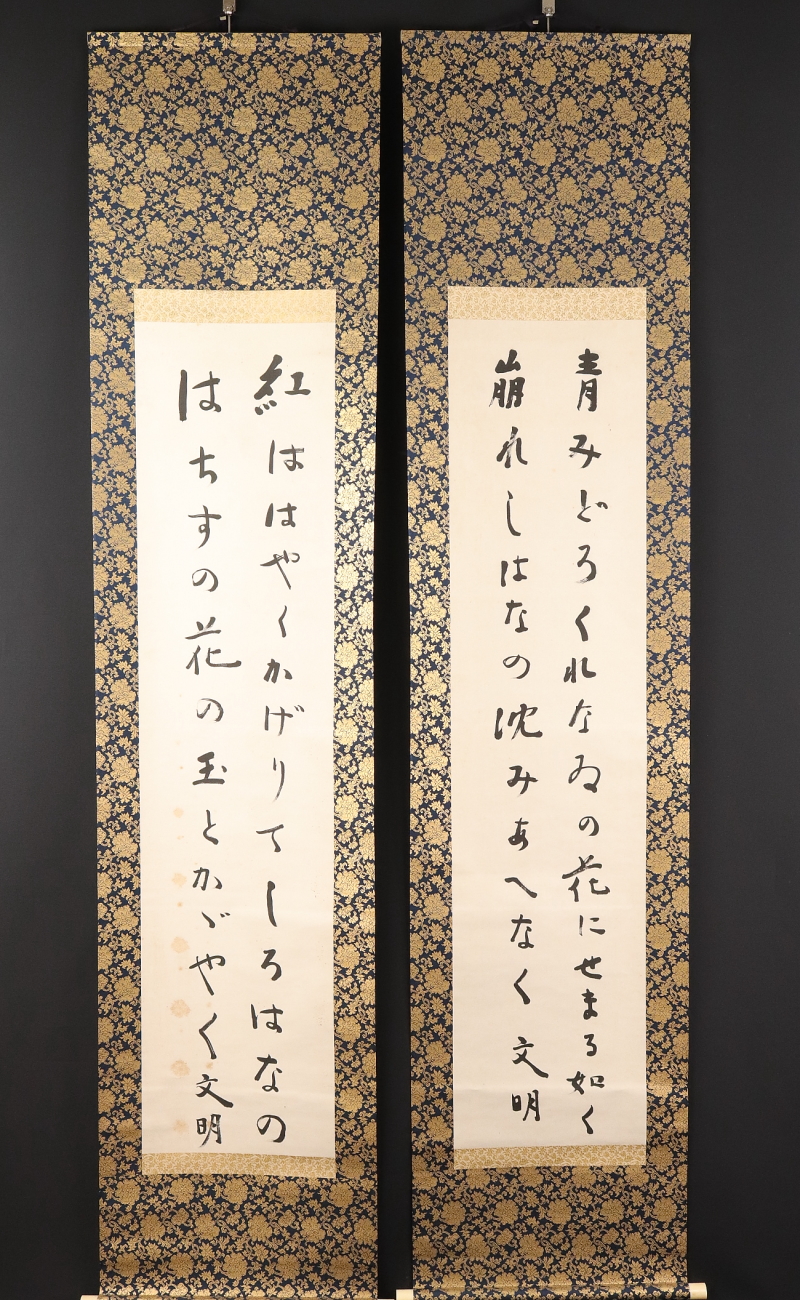 青みどろくれなゐの花にせまる如く
崩れしはなの沈みあへなく 文明
紅ははやくかげりてしろはなの
はちすの花の玉とかゞやく 文明